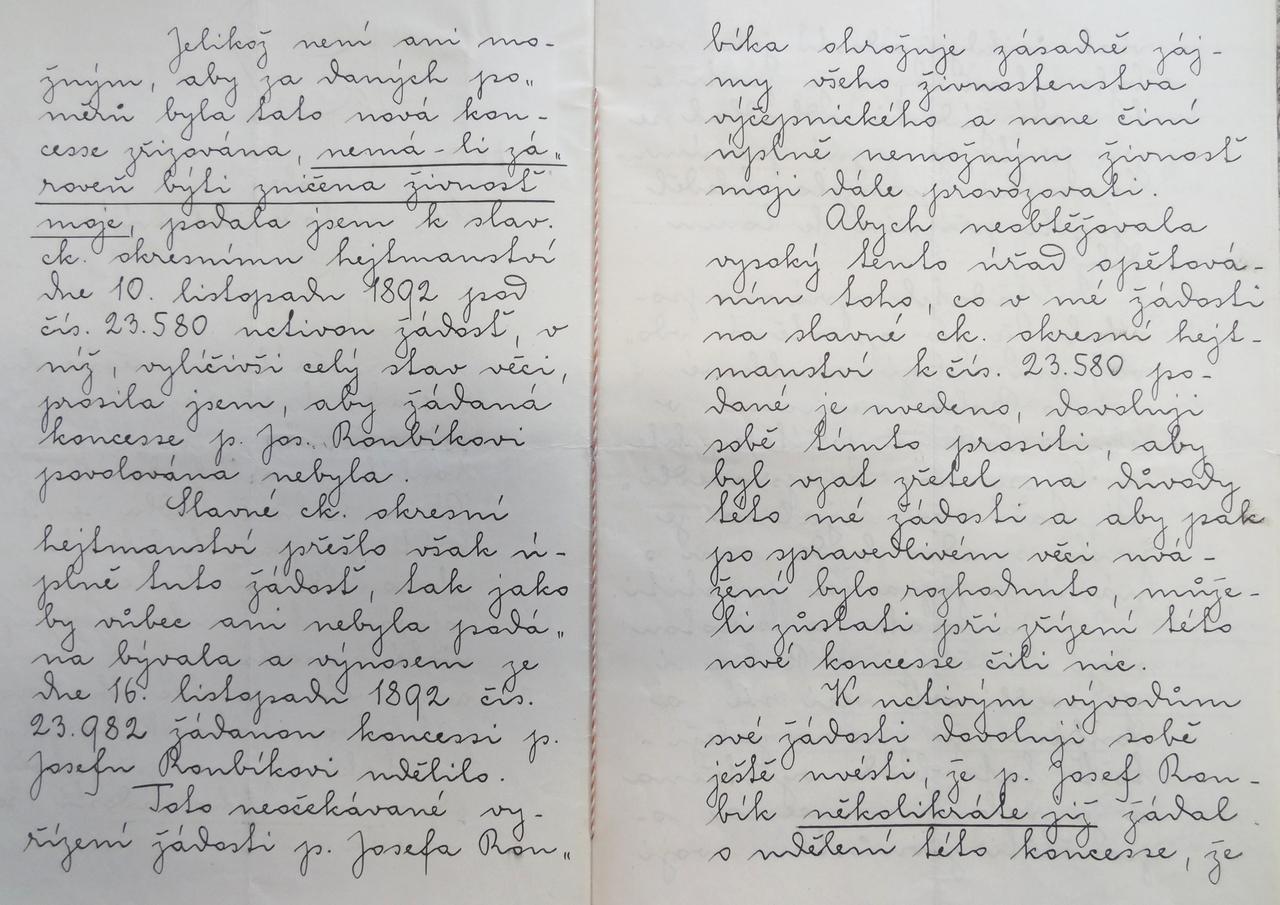 Jelikož není ani mo-
žným, aby za daných po„
měrů byla tato nová kon-
cesse zřizována, nemá-li zá„
roveň býti zničena živnosť
moje, podala jsem k slav.
ck. okresnímu hejtmanství
dne 10. listopadu 1892 pod
čís. 23.580 uctivou žádosť, v
níž, vylíčivši celý stav věci,
prosila jsem, aby žádaná
koncesse p. Jos. Roubíkovi
povolována nebyla.
Slavné ck. okresní
hejtmanství přešlo však ú-
plně tuto žádosť, tak jako
by vůbec ani nebyla podá„
na bývala a výnosem ze
dne 16. listopadu 1892 čís.
23.982 žádanou koncessi p.
Josefu Roubíkovi udělilo.
Toto neočekávané vy-
řízení žádosti p. Josefa Rou„
bíka ohrožuje zásadně záj-
my všeho živnostenstva
výčepnického a mne činí
úplně nemožným živnosť
moji dále provozovati.
Abych neobtěžovala
vysoký tento úřad opětová-
ním toho, co v mé žádosti
na slavné ck. okresní hejt-
manství k čís. 23.580 po-
dané je uvedeno, dovoluji
sobě tímto prositi, aby
byl vzat zřetel na důvody
této mé žádosti a aby pak
po spravedlivém věci uvá-
žení bylo rozhodnuto, může-
li zůstati při zřízení této
nové koncesse čili nic.
K uctivým vývodům
své žádosti dovoluji sobě
ještě uvésti, že p. Josef Rou-
bík několikráte již žádal
o udělení této koncesse, že